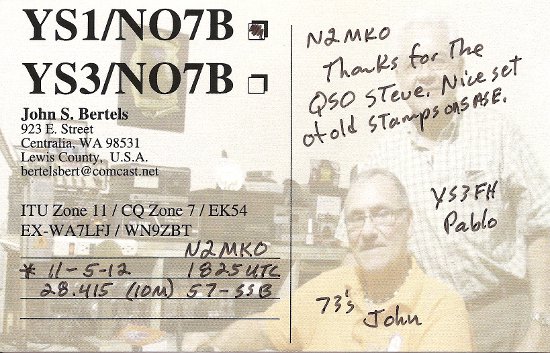 YS1/NO7B
YS3/NO7B
John S. Bertels
923 E. Street
Centralia, WA 98531
Lewis County, U.S.A.
bertelsbert@comcast.net
ITU Zone 11 / CQ Zone 7 / EK54
EX-WA7LFJ / WN9ZBT
N2MKO
* 11-5-12 1825 UTC
28.415 (10M) 57-SSB
N2MKO
Thanks for The
QSO Steve. Nice set
of old stamps on SASE.
YS3FH
Pablo
73's
John